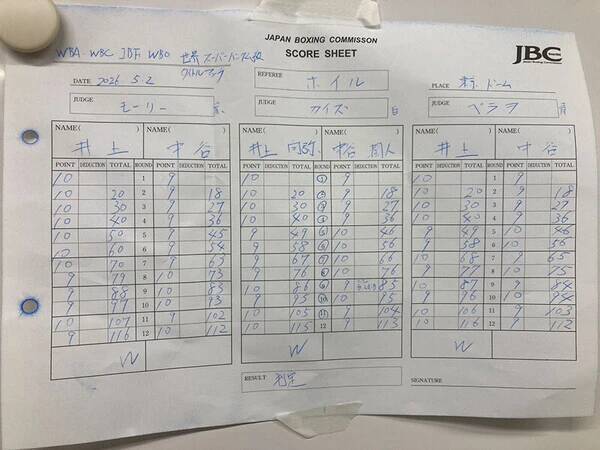 JAPAN BOXING COMMISSON
SCORE SHEET
JBC
WBA WBC IBF WBO 世界スーパーバンタム級
タイトルマッチ
DATE 2026 5.2 REFEREE ホイル PLACE 東京ドーム
JUDGE モーリー JUDGE カイズ 白 JUDGE ベラヲ
NAME( ) NAME( ) NAME( ) NAME( ) NAME( ) NAME( )
井上 中谷 井上 尚弥 中谷 潤人 井上 中谷
POINT DEDUCTION TOTAL ROUND POINT DEDUCTION TOTAL POINT DEDUCTION TOTAL ROUND POINT DEDUCTION TOTAL POINT DEDUCTION TOTAL ROUND POINT DEDUCTION TOTAL
10 1 9 10 1 9 10 1 9
10 20 2 9 18 10 20 2 9 18 10 20 2 9 18
10 30 3 9 27 10 30 3 9 27 10 30 3 9 27
10 40 4 9 36 10 40 4 9 36 10 40 4 9 36
10 50 5 9 45 9 49 5 10 46 9 49 5 10 46
10 60 6 9 54 9 58 6 10 56 9 58 6 10 56
10 70 7 9 63 9 67 7 10 66 10 68 7 9 65
9 79 8 10 73 9 76 8 10 76 9 77 8 10 75
9 88 9 10 83 10 86 9 9 85 10 87 9 9 84
9 97 10 10 93 9 95 10 10 95 9 96 10 10 94
10 107 11 9 102 10 105 11 9 104 10 106 11 9 103
9 116 12 10 112 10 115 12 9 113 10 116 12 9 112
W W W
RESULT 判定 SIGNATURE